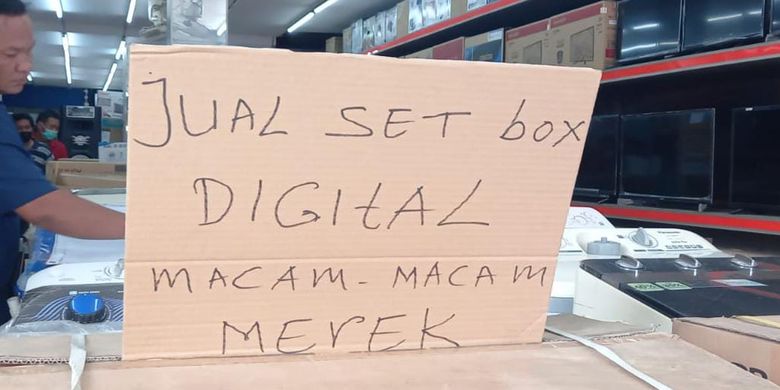 JUAL SET box
DIGItAL
MACAM-MACAM
MErEK